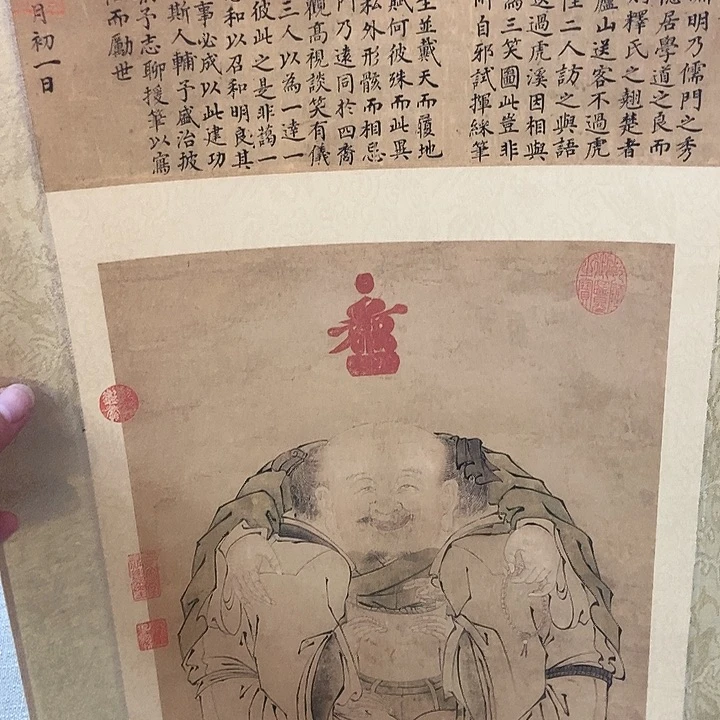 明乃儒門之秀
居學道之良而
釋氏之翹楚者
廬山送客不過虎
二人訪之與語
送過虎溪因相與
為三笑圖此豈非
自邪試揮綵筆
生並戴天而履地
賦何彼殊而此異
私外形骸而相忌
門乃遠同於四裔
觀高視談笑有儀
三人以為一達一
彼此之是非藹一
和以召和明良其
事必成以此建功
斯人輔予盛治披
予志聊援筆以寫
而勵世
月初一日